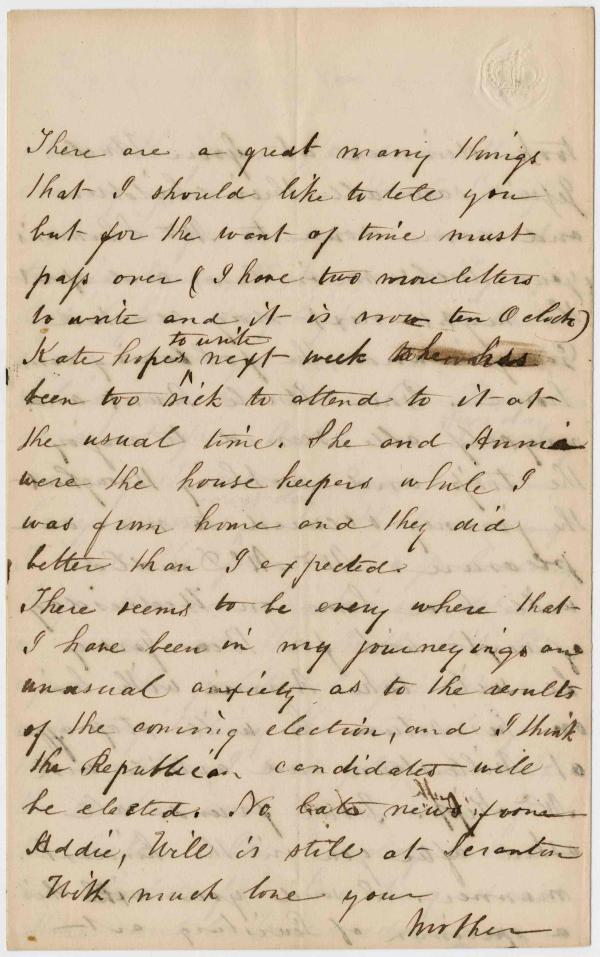 There are a great many things
that I should like to tell you
but for the want of time must
pass over (I have two more letters
to write and it is now ten O clock)
Kate hopes to write next week she has
been too sick to attend to it at
the usual time. She and Annie
were the house keepers while I
was from home and they did
better than I expected.
There seems to be every where that
I have been in my journeyings an
unusual anxiety as to the results
of the coming election, and I think
the Republican candidates will
be elected. No late news from
Addie, Will is still at Scranton
With much love your
Mother